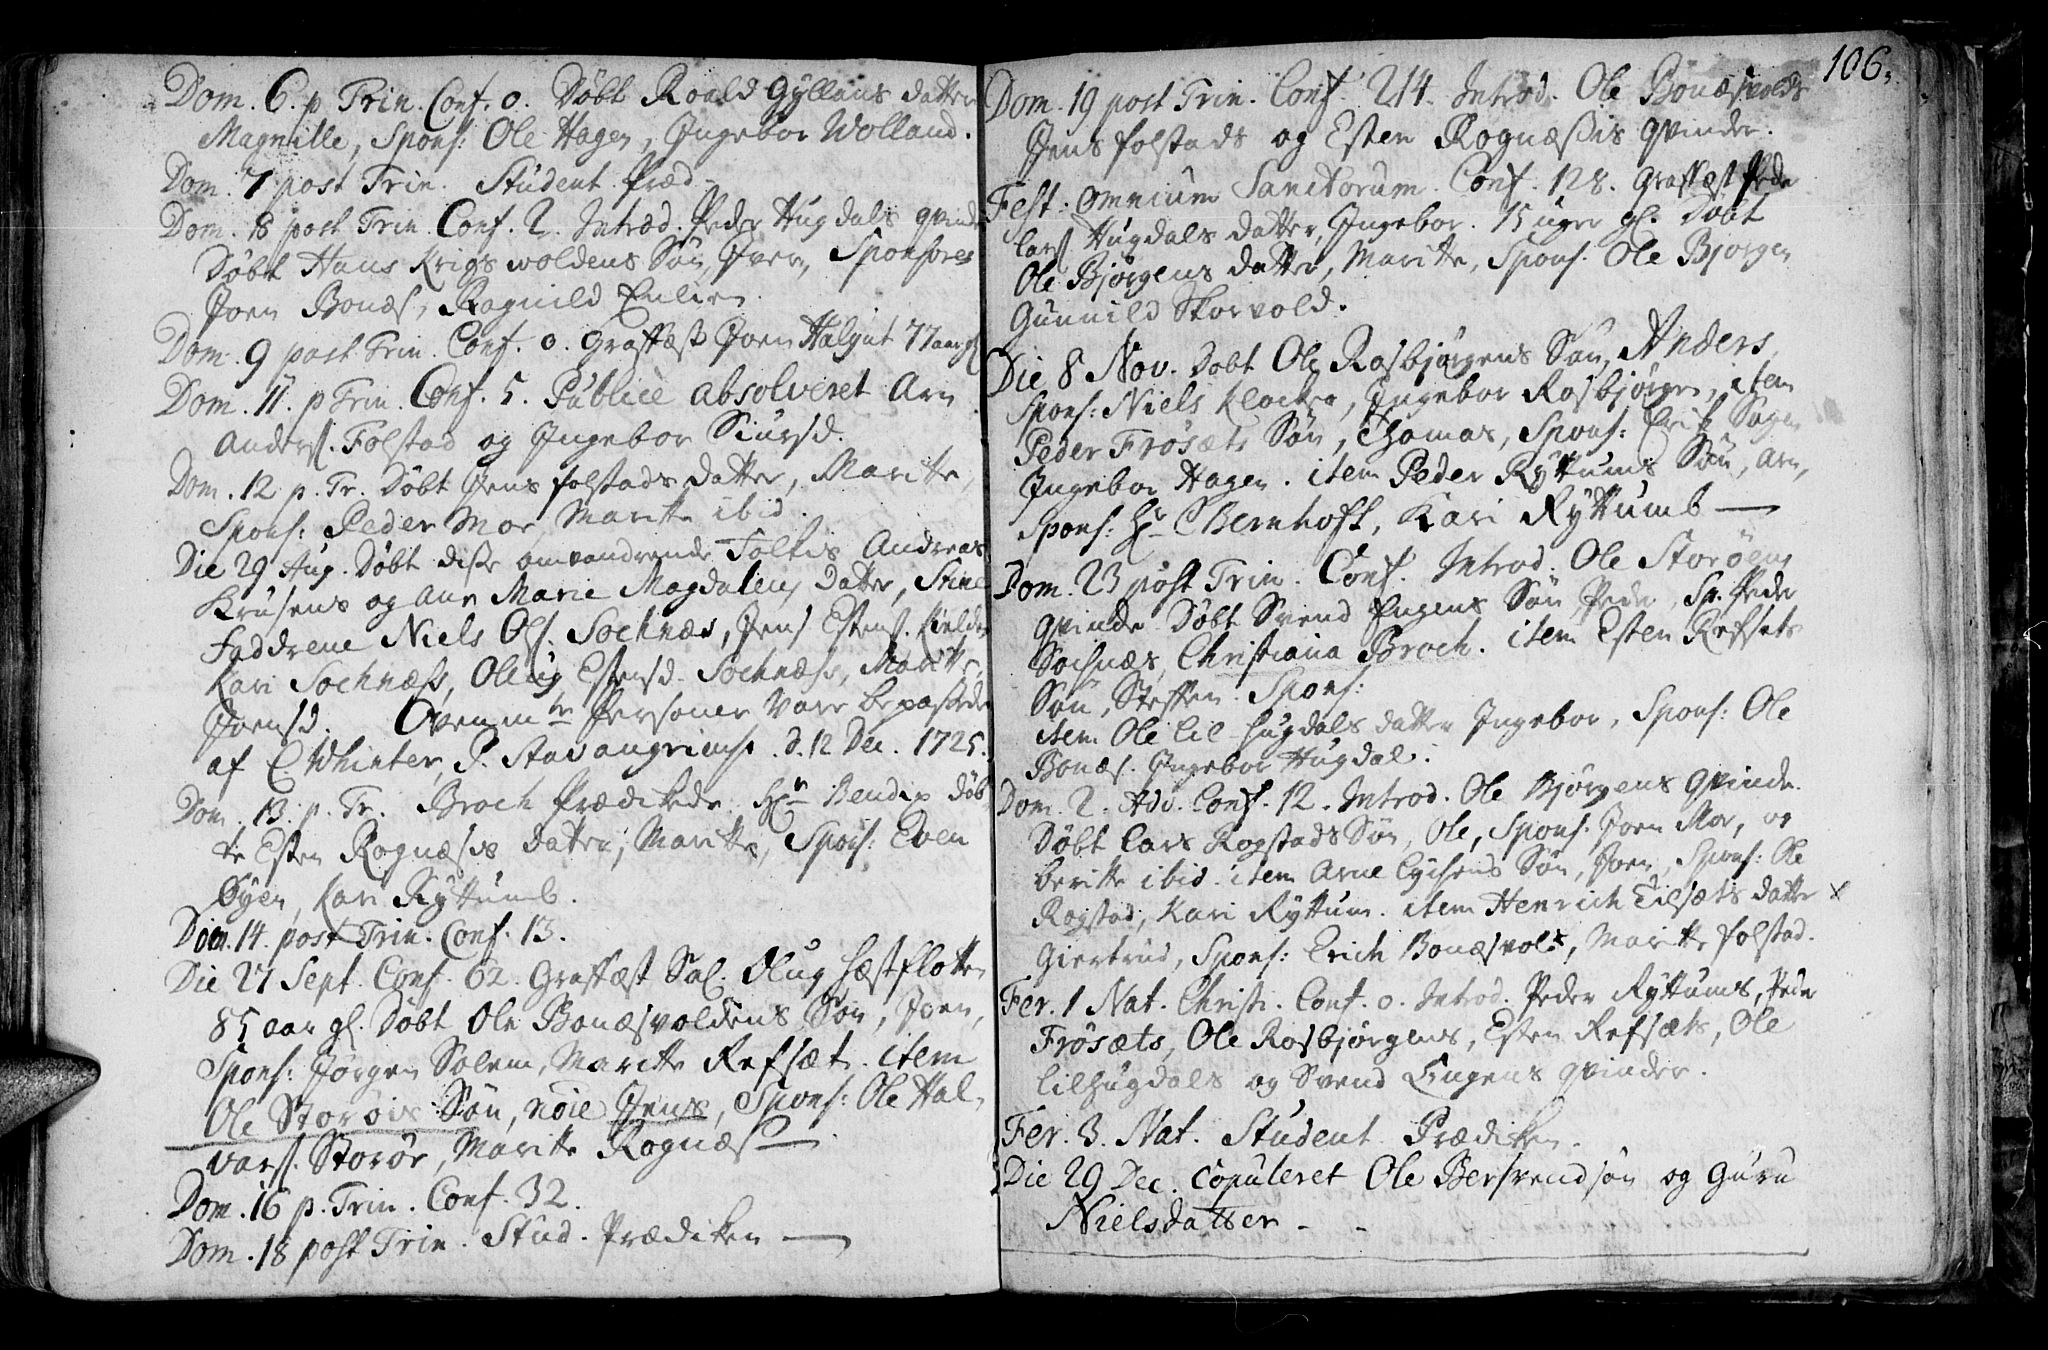 Dom. 6. p Trin. Conf. 0. Döbt Roald Gÿllans datter
Magnille, Spons: Ole Hagen, Ingebor Wolland.
Dom. 7 post Trin. Student præd.
Dom. 8 post Trin. Conf. 2. Introd. Peder Hugdals qvinde
Döbt Hans Krigswoldens Søn, Iver, Sponsores
Joen Bonæs, Ragnild Enlien
Dom. 9 post Trin. Conf. 0. Graffæst Joen Halgut 77 aar gl
Dom. 11. p Trin. Conf. 5. Publicè absolveret Arn
Anders. Folstad og Ingebor Siursd.
Dom. 12 p. Tr. Döbt Jens folstads datter, Maritte,
Spons: Peder Moe, Maritte ibid.
Die 29 Aug. Döbt disse omvandrende Folkis Andreas
Krusens og Ane Marie Magdalenæ datter, Stine
Faddrene Niels Ols. Sochnæs, Jens Estens.
Kari Sochnæss, Oleug Estensd. Sochnæss, Maritte
Joensd. Ovenmte Personer vare bepassede
af C Whinter, P. Stavangriensi d. 12 Dec. 1725.
Dom. 13. p. Tr. Broch prædikede. Hr Bendix döb
te Esten Rognæsis datter, Maritte, Spons: Even
Øyen, Kari Ryttumb.
Dom. 14. post Trin. Conf. 13.
Die 27 Sept. Conf. 62. Graffæst Sal. Olug Hæstflotten
85 aar gl. Döbt Ole Bonæsvoldens Søn, Joen,
Spons: Jørgen Solem, Maritte Refsæt. item
Ole Storöis Søn, noie Jens, Spons: Ole Hal-
vars. Storöe, Maritte Rognæs
Dom. 16 p. Trin. Conf. 32.
Dom. 18 post Trin. Stud. Prædiken
106.
Dom. 19 post Trin. Conf. 214. Introd. Ole Bonæsvolds
Jens folstads og Esten Rognæssis qvinder.
Fest. omnium Sanctorum. Conf. 128. Graffæst Peder
Lars Hugdals datter, Ingebor. 15 uger gl. Döbt
Ole Bjørgens datter, Maritte, Spons. Ole Bjorgen
Gunnild Skorvold.
Die 8 Nov. Döbt Ole Rosbjørgens Søn, Anders,
Spons: Niels Klocker, Ingebor Rosbjørgen, item
Peder Frösæts Søn, Thomas, Spons: Erik Sogn
Ingebor Hagen. item Peder Ryttums Søn, Arn,
Spons: Hr C Bernhoft, Kari Ryttumb
Dom. 23 post Trin. Conf. Introd. Ole Storöens
qvinde. Döbt Svend Engens Søn, Peder, Sp. Peder
Sochnæs, Christiana Broch. item Esten Refsets
Søn, Steffen. Spons:
item Ole Lil-hugdals datter Ingebor, Spons: Ole
Bonæs. Ingebor Hugdal.
Dom. 2. Adv. Conf. 12. Introd. Ole Bjørgens qvinde.
Döbt Lars Rogstads Søn, Ole, Spons. Joen Moe, og
Beritte ibid. item Arne Lychens Søn, Joen, Spons: Ole
Rogstad, Kari Ryttum. item Henrich Tilsæts datter
Giertrud, Spons: Erich Bonæsvold, Maritte folstad.
Fer. 1 Nat. Christi. Conf. 0. Introd. Peder Ryttums, Peder
Frösæts, Ole Rosbjørgens, Esten Refsæts, Ole
Lilhugdals og Svend Engens qvinder.
Fer. 3. Nat. Student Prædiken.
Die 29 Dec. copuleret Ole Bersvendsøn og Guru
Nielsdatter